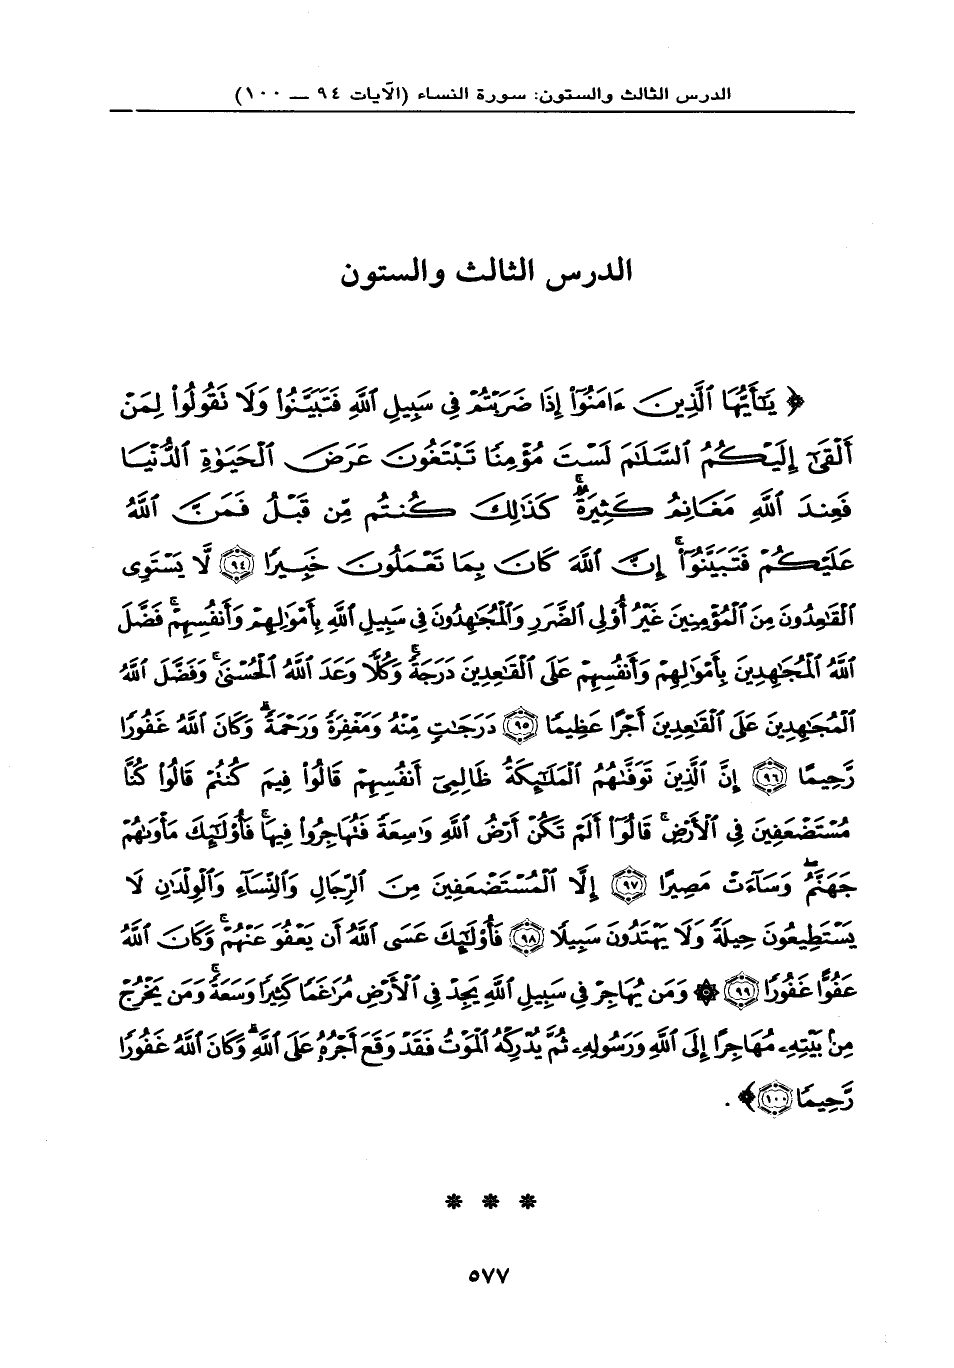 الدرس الثالث والستون: سورة النساء (الآيات ٩٤ — ١٠٠)
الدرس الثالث والستون
﴿ يَٰٓأَيُّهَا ٱلَّذِينَ ءَامَنُوٓا۟ إِذَا ضَرَبْتُمْ فِى سَبِيلِ ٱللَّهِ فَتَبَيَّنُوا۟ وَلَا تَقُولُوا۟ لِمَنْ
أَلْقَىٰٓ إِلَيْكُمُ ٱلسَّلَٰمَ لَسْتَ مُؤْمِنًا تَبْتَغُونَ عَرَضَ ٱلْحَيَوٰةِ ٱلدُّنْيَا
فَعِندَ ٱللَّهِ مَغَانِمُ كَثِيرَةٌ ۚ كَذَٰلِكَ كُنتُم مِّن قَبْلُ فَمَنَّ ٱللَّهُ
عَلَيْكُمْ فَتَبَيَّنُوٓا۟ ۚ إِنَّ ٱللَّهَ كَانَ بِمَا تَعْمَلُونَ خَبِيرًا ٩٤ لَّا يَسْتَوِى
ٱلْقَٰعِدُونَ مِنَ ٱلْمُؤْمِنِينَ غَيْرُ أُو۟لِى ٱلضَّرَرِ وَٱلْمُجَٰهِدُونَ فِى سَبِيلِ ٱللَّهِ بِأَمْوَٰلِهِمْ وَأَنفُسِهِمْ ۚ فَضَّلَ
ٱللَّهُ ٱلْمُجَٰهِدِينَ بِأَمْوَٰلِهِمْ وَأَنفُسِهِمْ عَلَى ٱلْقَٰعِدِينَ دَرَجَةً ۚ وَكُلًّا وَعَدَ ٱللَّهُ ٱلْحُسْنَىٰ ۚ وَفَضَّلَ ٱللَّهُ
ٱلْمُجَٰهِدِينَ عَلَى ٱلْقَٰعِدِينَ أَجْرًا عَظِيمًا ٩٥ دَرَجَٰتٍ مِّنْهُ وَمَغْفِرَةً وَرَحْمَةً ۚ وَكَانَ ٱللَّهُ غَفُورًا
رَّحِيمًا ٩٦ إِنَّ ٱلَّذِينَ تَوَفَّىٰهُمُ ٱلْمَلَٰٓئِكَةُ ظَالِمِىٓ أَنفُسِهِمْ قَالُوا۟ فِيمَ كُنتُمْ قَالُوا۟ كُنَّا
مُسْتَضْعَفِينَ فِى ٱلْأَرْضِ ۚ قَالُوٓا۟ أَلَمْ تَكُنْ أَرْضُ ٱللَّهِ وَٰسِعَةً فَتُهَاجِرُوا۟ فِيهَا ۚ فَأُو۟لَٰٓئِكَ مَأْوَىٰهُمْ
جَهَنَّمُ ۖ وَسَآءَتْ مَصِيرًا ٩٧ إِلَّا ٱلْمُسْتَضْعَفِينَ مِنَ ٱلرِّجَالِ وَٱلنِّسَآءِ وَٱلْوِلْدَٰنِ لَا
يَسْتَطِيعُونَ حِيلَةً وَلَا يَهْتَدُونَ سَبِيلًا ٩٨ فَأُو۟لَٰٓئِكَ عَسَى ٱللَّهُ أَن يَعْفُوَ عَنْهُمْ ۚ وَكَانَ ٱللَّهُ
عَفُوًّا غَفُورًا ٩٩ ۞ وَمَن يُهَاجِرْ فِى سَبِيلِ ٱللَّهِ يَجِدْ فِى ٱلْأَرْضِ مُرَٰغَمًا كَثِيرًا وَسَعَةً ۚ وَمَن يَخْرُجْ
مِنۢ بَيْتِهِۦ مُهَاجِرًا إِلَى ٱللَّهِ وَرَسُولِهِۦ ثُمَّ يُدْرِكْهُ ٱلْمَوْتُ فَقَدْ وَقَعَ أَجْرُهُۥ عَلَى ٱللَّهِ ۗ وَكَانَ ٱللَّهُ غَفُورًا
رَّحِيمًا ١٠٠ ﴾ .
* * *
٥٧٧